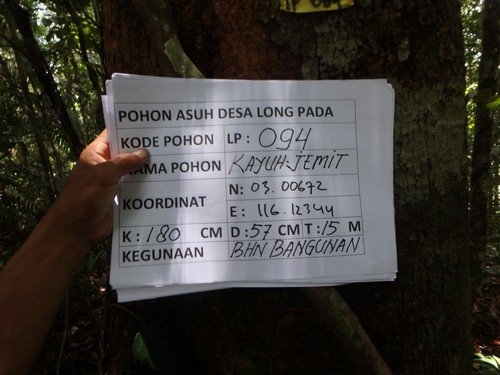 POHON ASUH DESA LONG PADA
KODE POHON LP : 094
NAMA POHON KAYUH-JEMIT
KOORDINAT N: 03.00672
E: 116.12344
K : 180 CM D : 57 CM T : 15 M
KEGUNAAN BHN BANGUNAN